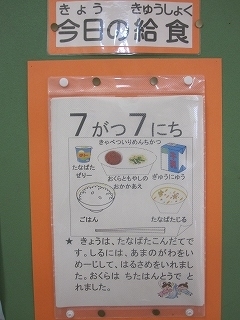 きょう　きゅうしょく
今日の給食
7がつ7にち
きゃべついりめんちかつ
たなばた
ぜりー
ぎゅうにゅう
おくらともやしの
おかかあえ
ごはん
たなばたじる
★ きょうは、たなばたこんだてで
す。しるには、あまのがわをい
めーじして、はるさめをいれまし
た。おくらは ちたはんとうで と
れました。